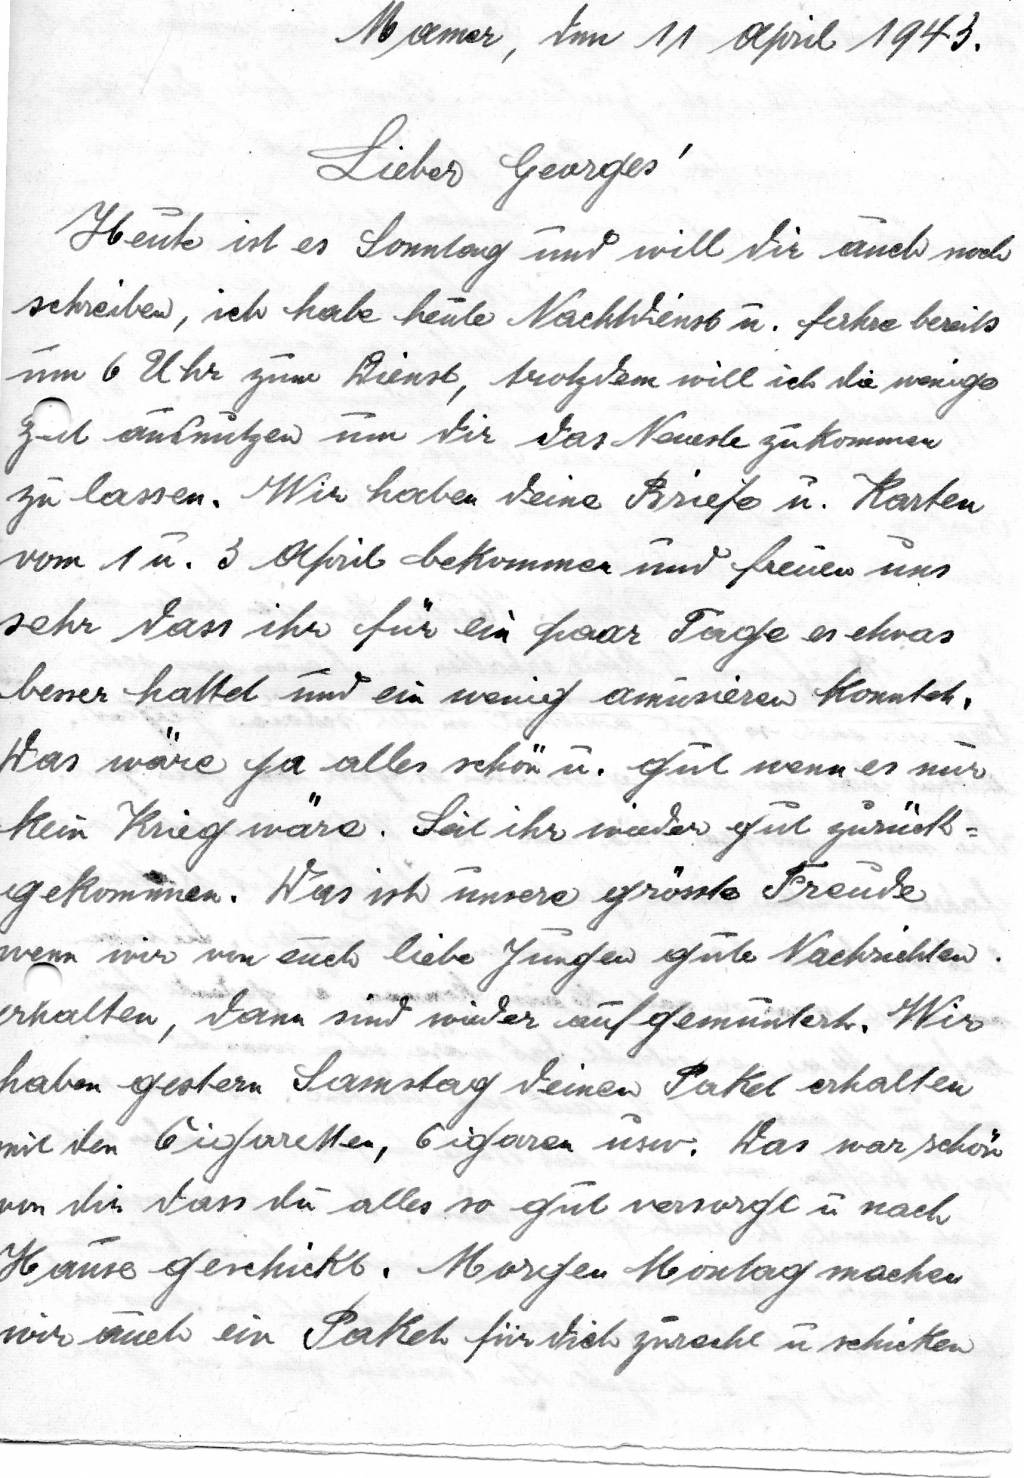 Mamer, den 11 April 1943.
Lieber Georges!
Heute ist es Sonntag und will dir auch noch
schreiben, ich habe heute Nachtdienst u. fahre bereits
um 6 Uhr zum Dienst, trotzdem will ich die wenige
Zeit ausnutzen um dir das Neueste zukommen
zu lassen. Wir haben deine Briefe u. Karten
vom 1 u. 3 April bekommen und freuen uns
sehr dass ihr für ein paar Tage es etwas
besser hattet und ein wenig amüsieren konntet.
Das wäre ja alles schön u. gut wenn es nur
kein Krieg wäre. Seit ihr wieder gut zurück=
gekommen. Das ist unsere grösste Freude
wenn wir von euch liebe Jungen gute Nachrichten
erhalten, dann sind wieder aufgemuntert. Wir
haben gestern Samstag deinen Paket erhalten
mit den Cigaretten, Cigaren usw. Das war schön
von dir dass du alles so gut versorgt u nach
Hause geschickt. Morgen Montag machen
wir auch ein Paket für dich zurecht u schicken